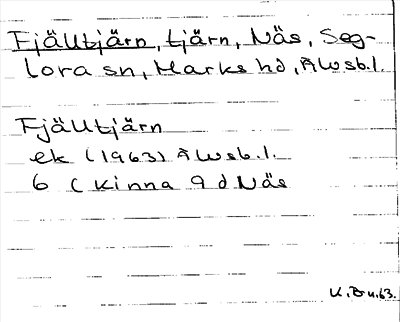 Fjälltjärn, tjärn, Näs, Seg-
lora sn, Marks hd, Älvsb.l.
Fjälltjärn
ek (1963) Älvsb.l.
6 ( Kinna 9 d Näs